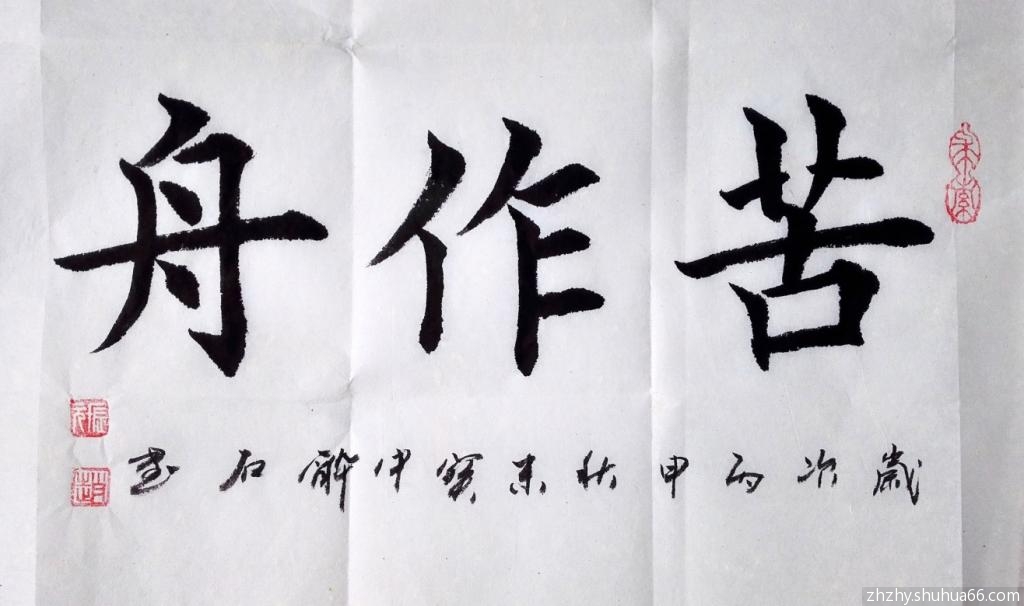 苦作舟
歲次丙申秋末寳中醉石書
zhzhy.shuhua66.com